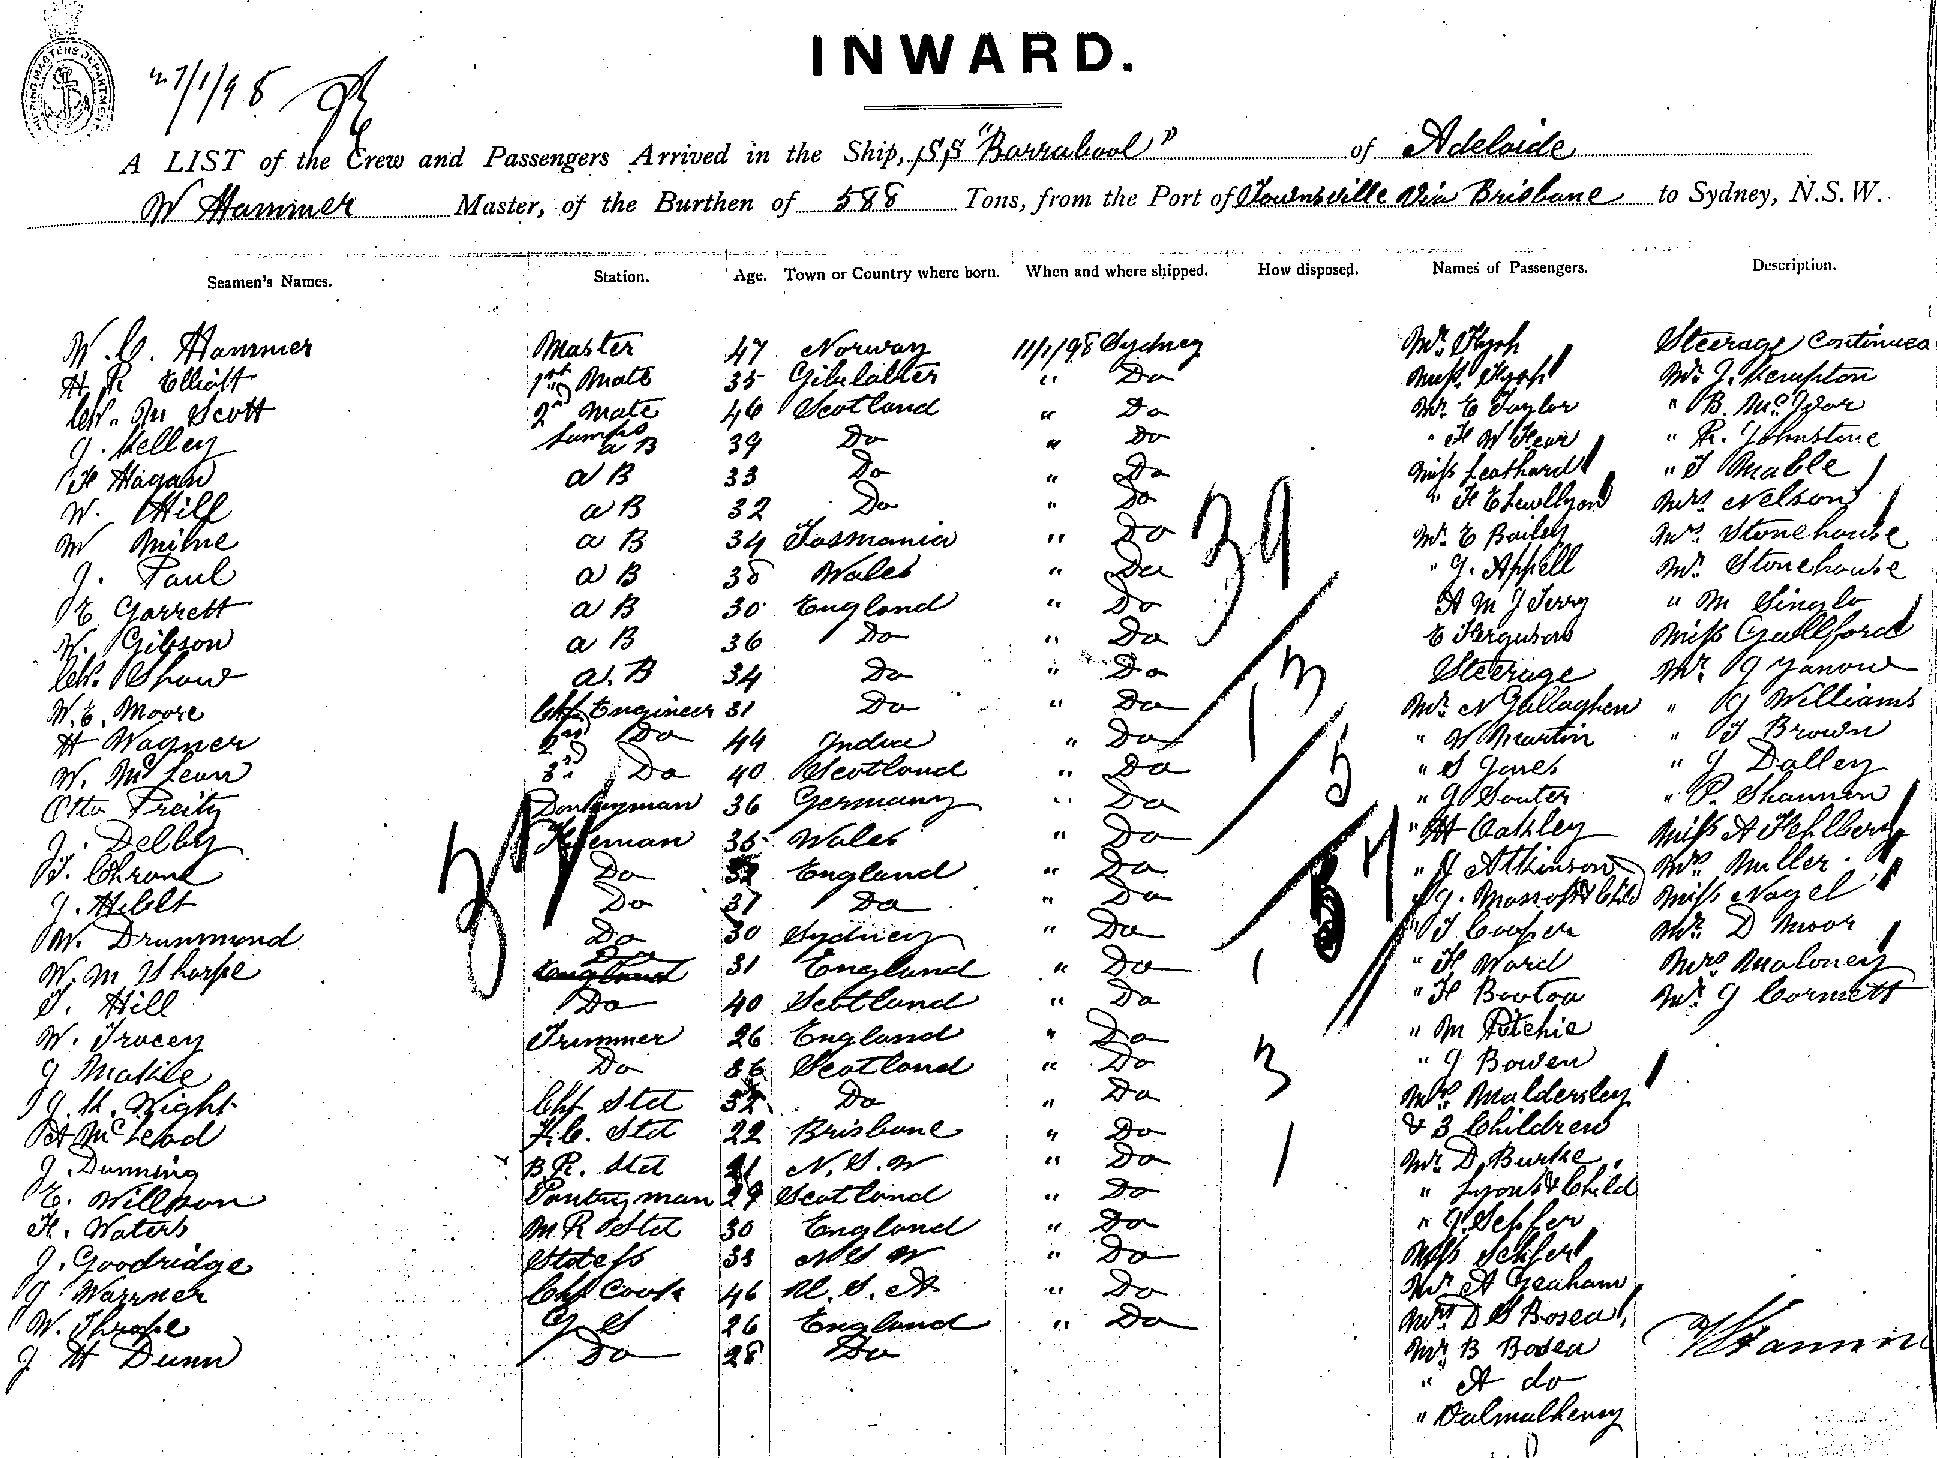 INWARD.
27/1/98
A LIST of the Crew and Passengers Arrived in the Ship, SS "Barrabool" of Adelaide
W Hammer Master, of the Burthen of 588 Tons, from the Port of Townsville Via Brisbane to Sydney, N.S.W.
Seamen's Names. Station. Age. Town or Country where born. When and where shipped. How disposed. Names of Passengers. Description.
W. C. Hammer Master 47 Norway 11/1/98 Sydney Mr. Steerage Continued
H R Elliott 1st Mate 35 Gibilalter " Do Miss Mr. J. Kempton
Ch. M Scott 2nd Mate 46 Scotland " Do Mr. E Taylor " B. McIvor
J. Kelley Lamps a B 39 Do " Do " H W Fear " R. Johnstone
H Hagan a B 33 Do " Do Miss Leathard " T Mable
W. Hill a B 32 Do " Do " H E Mrs Nelson
W Milne a B 34 Tasmania " Do Mr. E Bailey Mrs Stonehouse
J. Paul a B 35 Wales " Do " G. Appell Mr. Stonehouse
E Garrett a B 30 England " Do A M J Terry " M
W. Gibson a B 36 Do " Do E Ferguson Miss Gullford
Ch. Shaw a. B 34 Do " Do Steerage Mr. J
W. E. Moore Chf Engineer 31 Do " Do Mr. N Gallaghen " G Williams
H Wagner 2nd Do 44 India " Do " W Martin " T Brown
W. McLean 3rd Do 40 Scotland " Do " S Jones " J Dalley
Otto Preitz Donkeyman 36 Germany " Do " J Souter " P. Shannon
J. Delby Fireman 35 Wales " Do " H Oakley Miss A Fehlberg
T. Chrane Do England " Do " J Atkinson Mrs Miller
J. Do 37 Do " Do " J. & Child Miss Nagel
W. Drummond Do 30 Sydney " Do " T Cooper Mr. D Moor
W. M Tharpe Do 31 England " Do " H Ward Mrs Maloney
T. Hill Do 40 Scotland " Do " H Mr. J Cornett
W. Tracey Trimmer 26 England " Do " M Ritchie
J Makie Do 36 Scotland " Do " J Bowen
J. H. Wight Chf Std 32 Do " Do Mrs. Maldersley
A McLeod F.C. Std 22 Brisbane " Do & 3 Children
J. Dunning B R. Std 21 N. S. W " Do Mr. D Burke
E. Willson Pantryman 29 Scotland " Do " Lyons & Child
H. Waters M R Std 30 England " Do " J. Sekfer
J. Goodridge Stdess 33 N S W " Do Miss Sekfer
J Warrner Chf Cook 46 U. S. A " Do Mr. A Geaham
W. Thrope 26 England " Do Mrs D S Bosea
J H Dunn Do 28 Do Mr. B Bosea
" A do
" Dalmalhenny
34
39
13
5
57
1
3
1